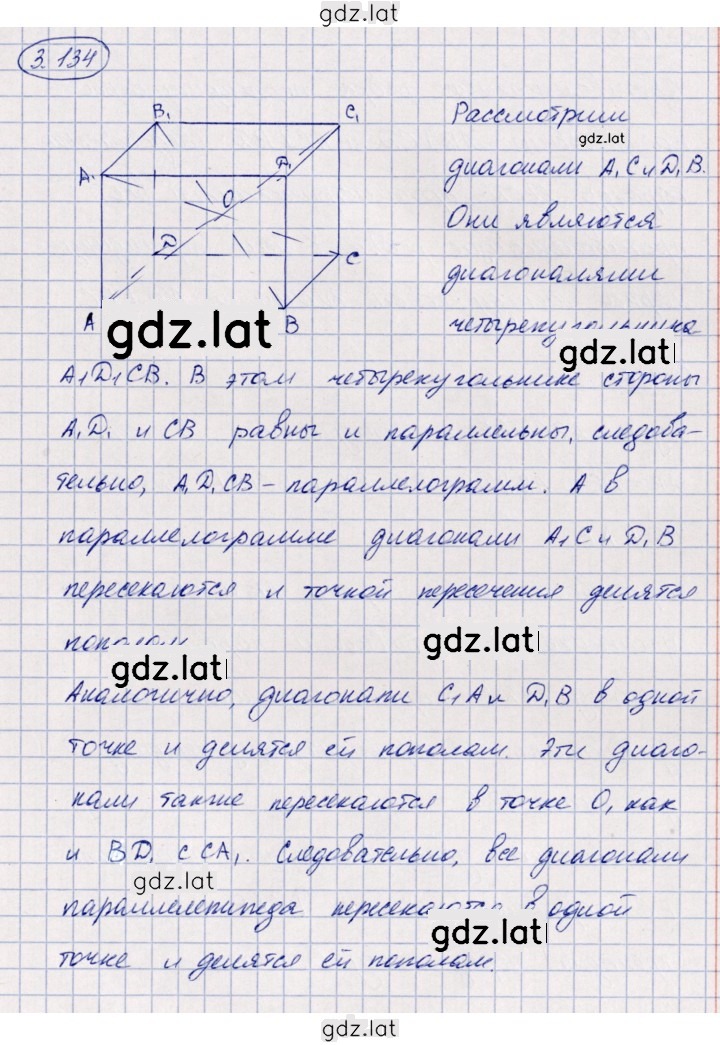 gdz.lat
3.134
B₁ C₁
A₁ D₁
O
D C
A B
Рассмотрим
gdz.lat
диагонали A₁C и D₁B.
Они являются
диагоналями
четырехугольника
gdz.lat
gdz.lat
A₁D₁CB. В этом четырехугольнике стороны
A₁D₁ и CB равны и параллельны, следова-
тельно, A₁D₁CB – параллелограмм. А в
параллелограмме диагонали A₁C и D₁B
пересекаются и точкой пересечения делятся
пополам
gdz.lat
gdz.lat
Аналогично, диагонали C₁A и D₁B в одной
точке и делятся ей пополам. Эти диаго-
нали также пересекаются в точке O, как
и BD₁ с CA₁. Следовательно, все диагонали
gdz.lat
параллелепипеда пересекаются в одной
gdz.lat
точке и делятся ей пополам.
gdz.lat